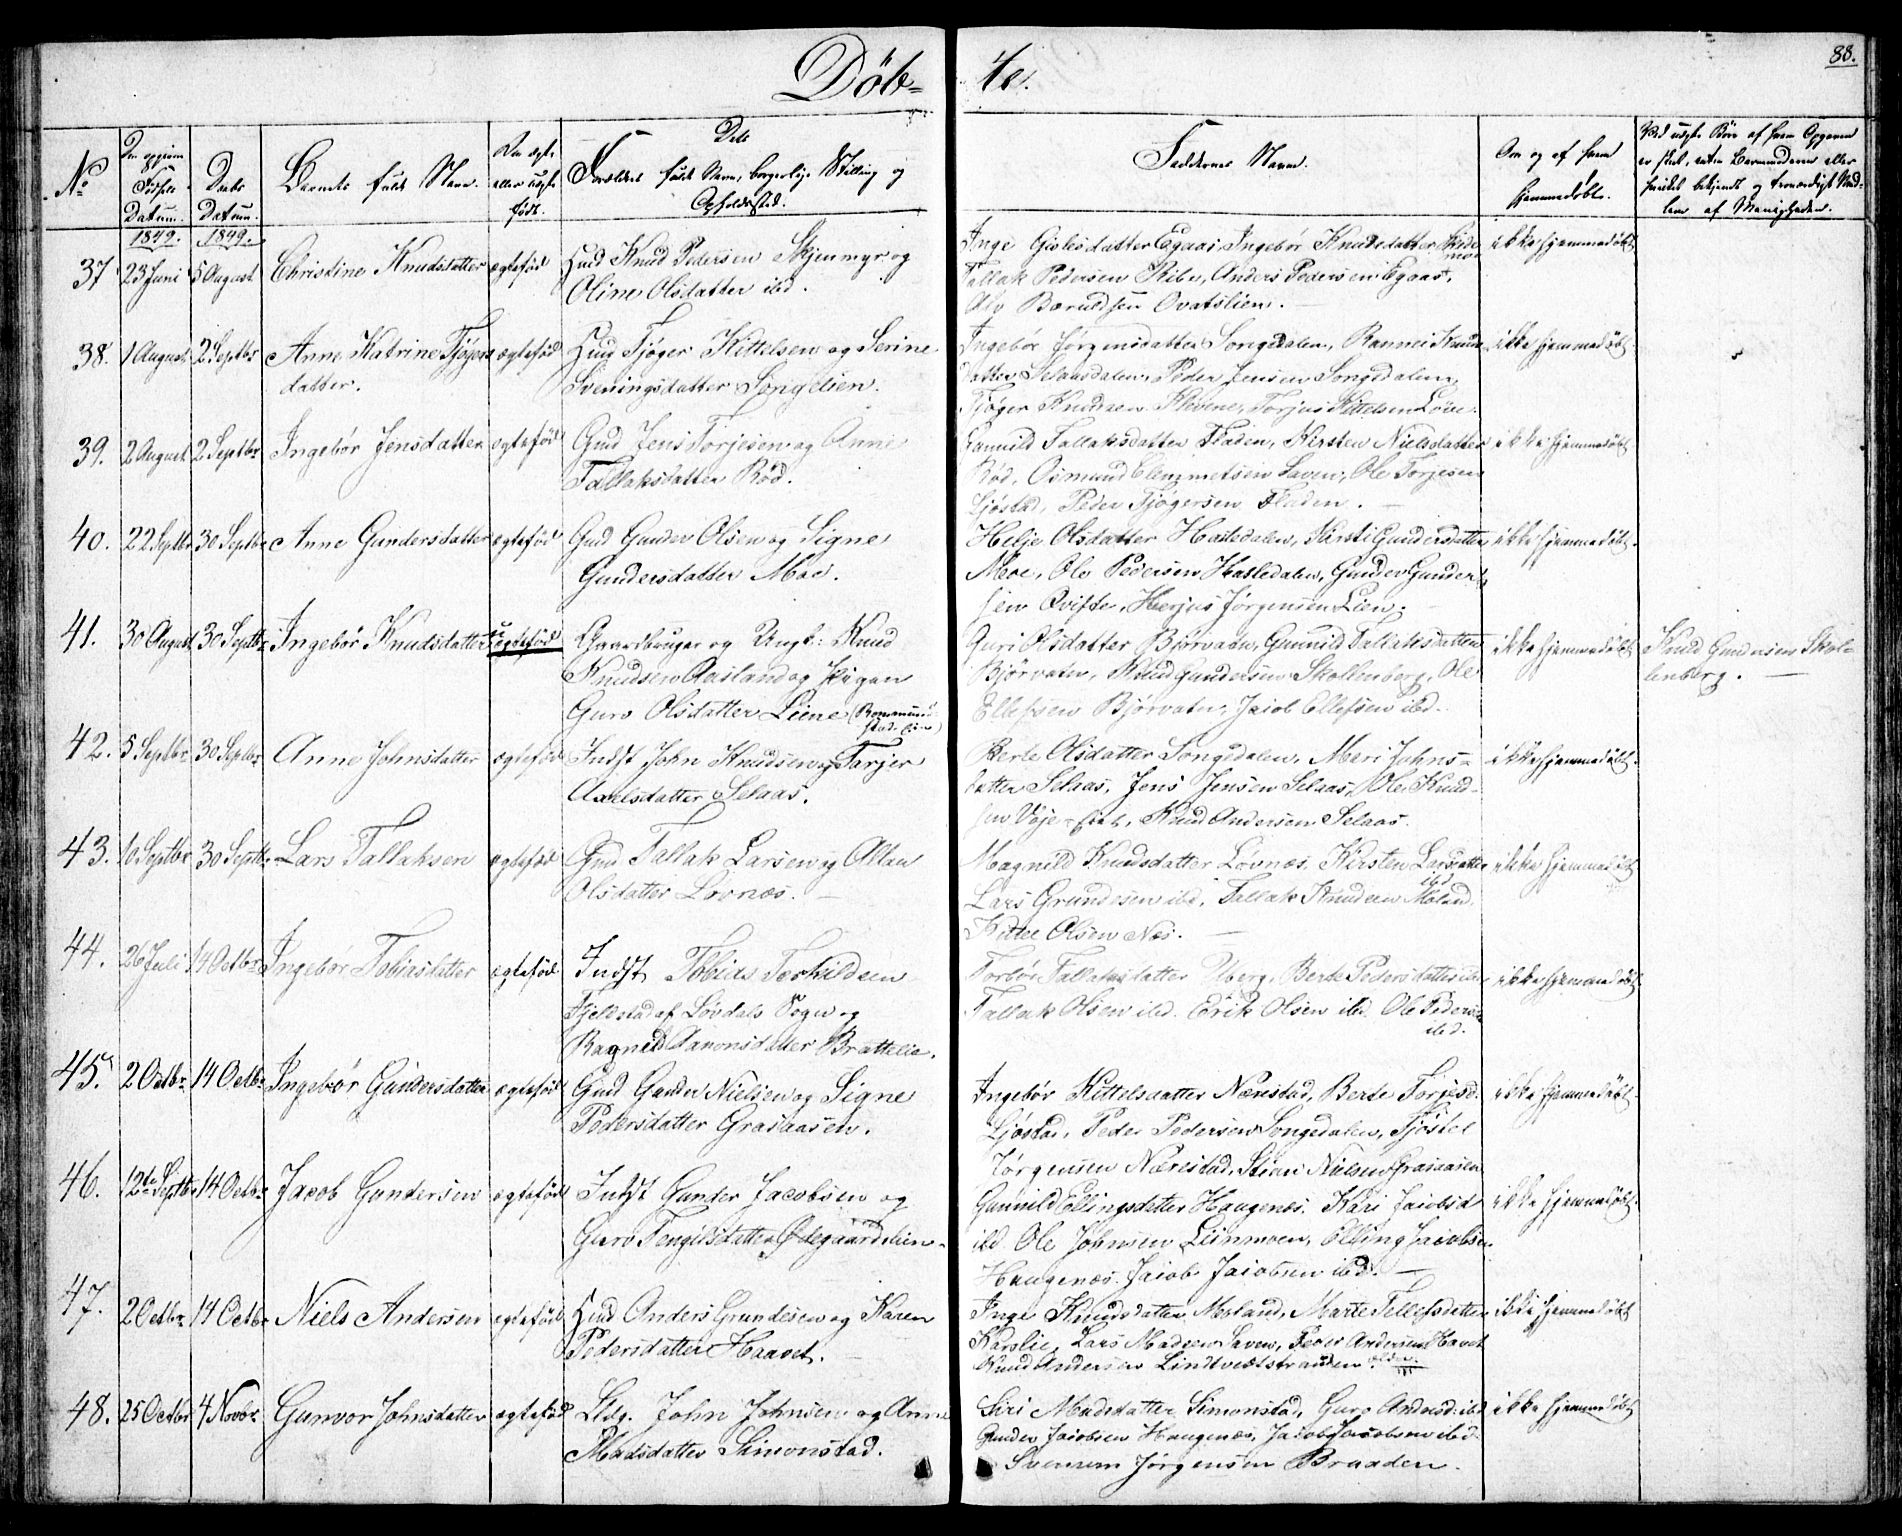 Døb-
te.
88.
No
Den opgivne Fødsels Datum.
Daabs Datum.
Barnets fulde Navn.
Om ægte eller uægte født.
Dets
Forældres fulde Navn, borgerlige Stilling og
Opholdssted.
Faddernes Navne.
Om og af hvem
hjemmedøbt.
Ved uægte Børn af hvem Opgaven
er skeet, enten Barnemoderen eller
leer af Menigheden.
1849. 1849.
37 23 Juni 5 August. Christine Knudsdatter ægtefød Huusmd Knud Pedersen Skjenmyr og
Oline Olsdatter ibd.
Inge Gislesdatter Egaas, Ingebør Knudsdatter
Tallak Pedersen Ribe, Anders Pedersen Egaas,
Ole Beruldsen Ovatslien.
ikke hjemmedøbt
38. 1 August. 2 Septbr Anne Katrine Tjøgers
datter.
ægtefød Huusmd Tjøger Kittelsen og Serine
Sveningsdatter Songelien.
Ingebør Jørgensdatter Songedalen, Rannei Knuds
datter Selaasdalen, Peder Jensen Songedalen,
Tjøger Knudsen Klivene, Torjus Kittelsen Løve
ikke hjemmedøbt
39. 2 August. 2 Septbr Ingebør Jensdatter ægtefød Gmd Jens Torjesen og Anne
Tallaksdatter Rød.
Gunnild Tallaksdatter Fladen, Kirsten Nielsdatter
Rød, Osmund Clemmetsen Saven, Ole Torjesen
Sjøstad, Peder Tjøgersen Fladen.
ikke hjemmedøbt
40. 22 Septbr 30 Septbr Anne Gundersdatter ægtefød Gmd Gunder Olsen og Signe
Gundersdatter Moe.
Helje Olsdatter Hasledalen, Kirsti Gundersdatter
Moe, Ole Pedersen Hasledalen, Gunder Gunder-
sen Qvifte, Herjus Jørgensen Lien.
ikke hjemmedøbt.
41. 30 August 30 Septbr Ingebør Knudsdatter uægtefød Gaardbruger og Ungk: Knud
Knudsen Aasland og Pigen
Guro Olsdatter Liene
Guri Olsdatter Bjørvatn, Gunnild Tallaksdatter
Bjørvatn, Knud Gundersen Skollenberg, Ole
Ellefsen Bjørvatn, Jacob Ellefsen ibd.
ikke hjemmedøbt
Knud Gundersen Skol-
lenberg.
42. 5 Septbr 30 Septbr Anne Johnsdatter ægtefød Indst John Knudsen og Tarjer
Axelsdatter Selaas.
Berte Olsdatter Songedalen, Mari Johns-
datter Selaas, Jens Jensen Selaas, Ole Knud-
sen Veje-stat, Knud Andersen Selaas.
ikke hjemmedøbt.
43. 10 Septbr 30 Septbr Lars Tallaksen ægtefød Gmd Tallak Larsen og Allau
Olsdatter Lovnæs.
Magnild Knudsdatter Løvnæs, Kirsten Larsdatter ibd
Lars Grundesen ibd, Tallak Knudsen Moland.
Kittel Olsen Næs.
ikke hjemmedøbt
44. 26 Juli 14 Octbr Ingebør Tobiasdatter ægtefød Indst Tobias Terkildsen
Fjeldstad af Løvdals Sogn og
Ragnild Aanonsdatter Brattelie.
Torbør Tallaksdatter Uberg, Berte Pedersdatter ibd
Tallak Olsen ibd. Erik Olsen ibd. Ole Pedersen
ibd.
ikke hjemmedøbt
45. 2 Octbr 14 Octbr Ingebør Gundersdatter ægtefød Gmd Gunder Nielsen og Signe
Pedersdatter Grasaasen.
Ingebør Kittelsdatter Nærestad, Berte Torjesd.
Sjøstad, Peder Pedersen Songedalen, Tjøstel
Jørgensen Nærestad, Stian Nielsen Grasaasen
ikke hjemmedøbt.
46. 12te Septbr 14 Octbr Jacob Gundersen ægtefød Indst Gunder Jacobsen og
Guro Tengilsdatter Ødegaardslien.
Gunnild Ellingsdatter Haugenæs, Kari Jacobsd
ibd Ole Johnsen Liinmoen, Elling Jacobsen
Haugenæs. Jacob Jacobsen ibd.
ikke hjemmedøbt.
47. 2 Octbr 14 Octbr Niels Andersen ægtefød Huusmd Anders Grundesen og Karen
Pedersdatter Haavet.
Inge Knudsdatter Moland, Marte Tellefsdatter
Karslie, Lars Madsen Saven, Peder Andersen Havet
Knud Andersen Lindtveitstranden
ikke hjemmedøbt
48. 25 Octbr 4 Novbr Gunvor Johnsdatter ægtefød John Johnsen og Anne
Madsdatter Simonstad.
Siri Madsdatter Simonstad, Guro Andersd: ibd
Gunder Jacobsen Haugenæs, Jacob Jacobsen ibd.
Svennem Jørgensen Braaden.
ikke hjemmedøbt